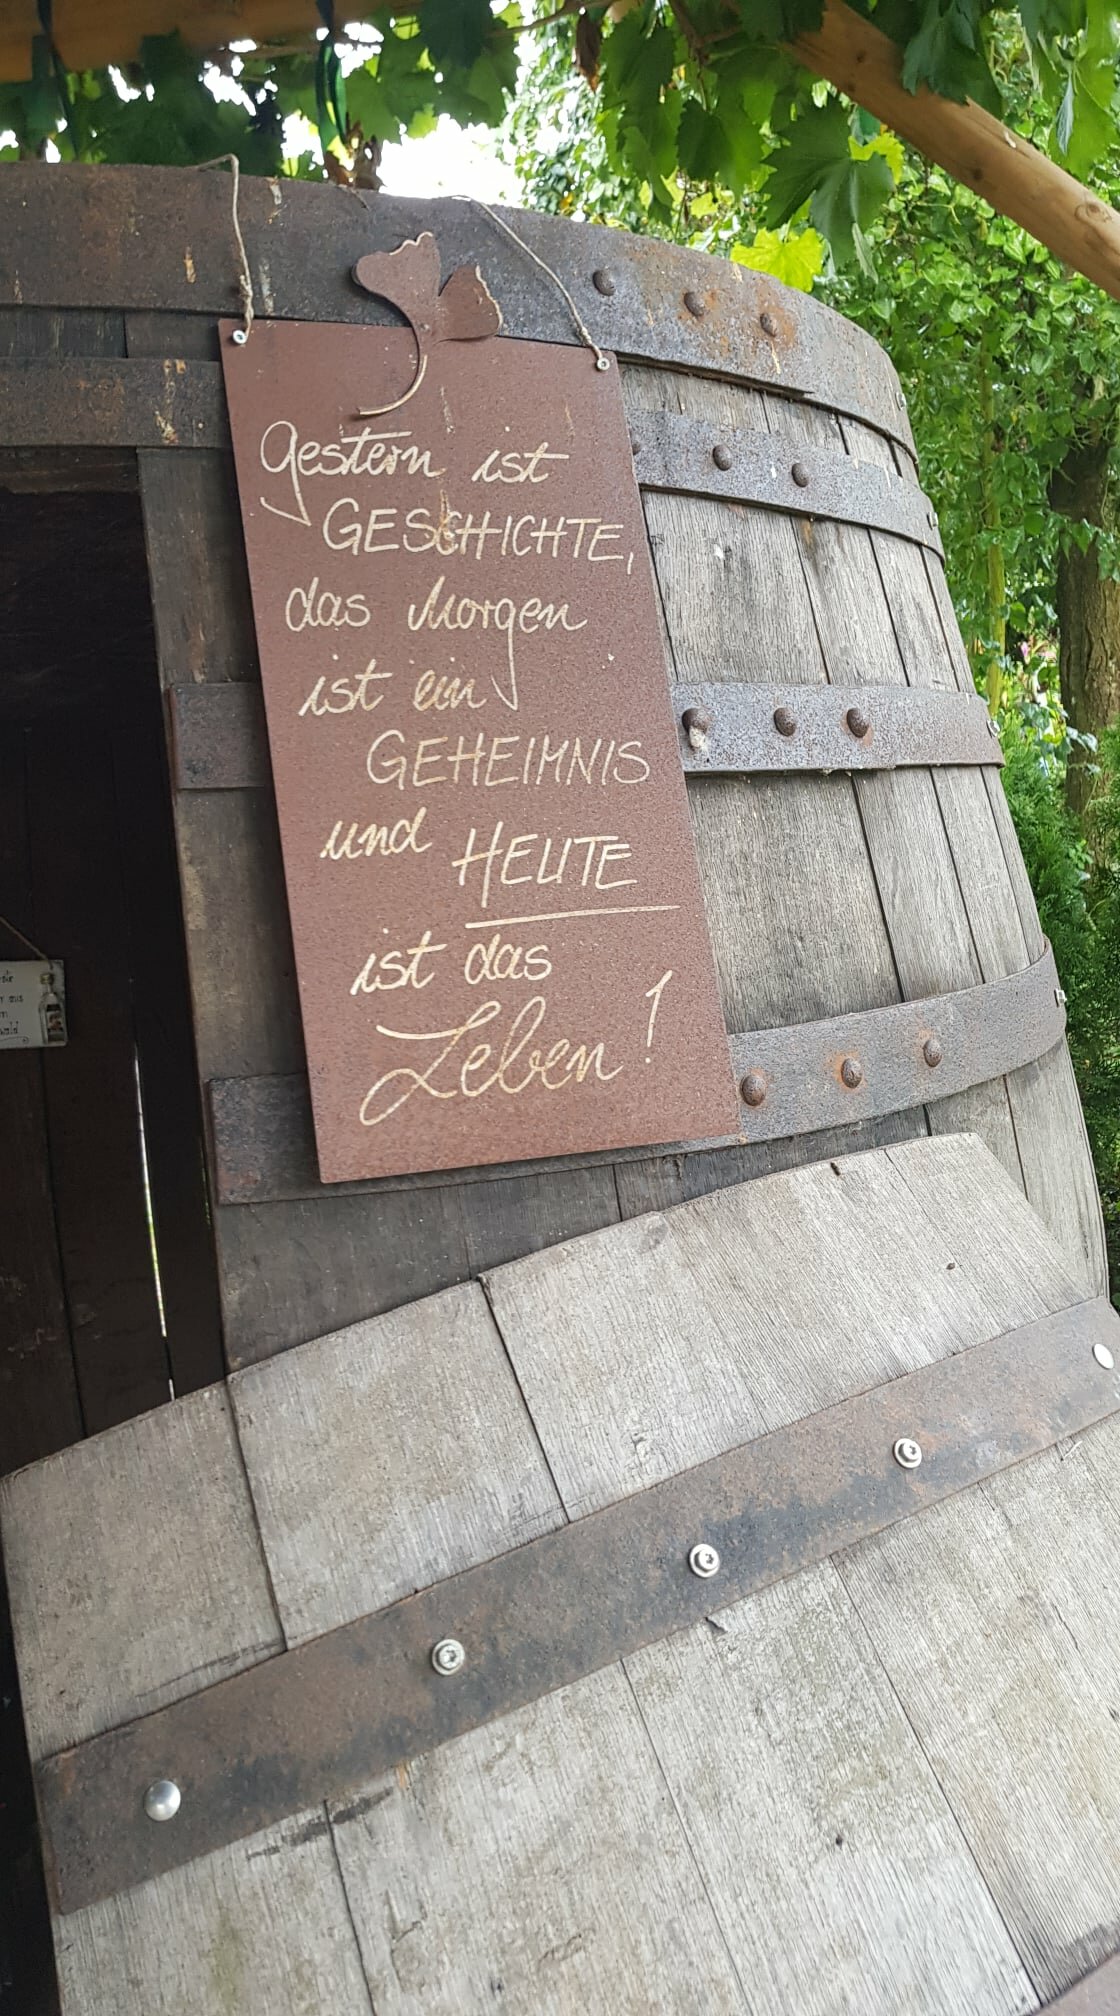 Gestern ist
GESCHICHTE,
das Morgen
ist ein
GEHEIMNIS
und HEUTE
ist das
Leben!